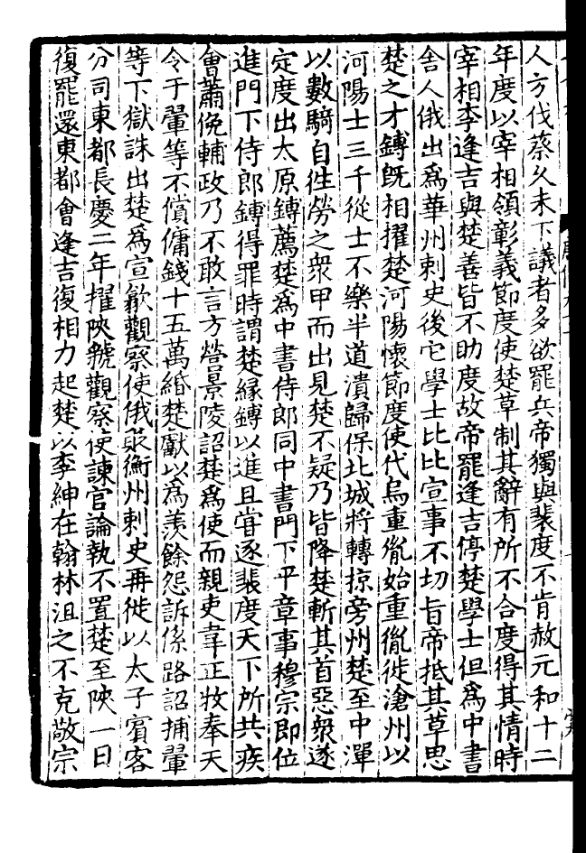 人方伐蔡久未下議者多欲罷兵帝獨與裴度不肯赦元和十二
年度以宰相領彰義節度使楚草制其辭有所不合度得其情時
宰相李逢吉與楚善皆不助度故帝罷逢吉停楚學士但爲中書
舍人俄出爲華州刺史後它學士比比宣事不切旨帝抵其草思
楚之才鎛既相擢楚河陽懷節度使代烏重胤始重胤徙滄州以
河陽士三千從士不樂半道潰歸保北城將轉掠旁州楚至中潬
以數騎自往勞之衆甲而出見楚不疑乃皆降楚斬其首惡衆遂
定度出太原鎛薦楚爲中書侍郎同中書門下平章事穆宗即位
進門下侍郎鎛得罪時謂楚緣鎛以進且嘗逐裴度天下所共疾
會蕭俛輔政乃不敢言方營景陵詔楚爲使而親吏韋正牧奉天
令于翬等不償傭錢十五萬緡楚獻以爲羨餘怨訴係路詔捕翬
等下獄誅出楚爲宣歙觀察使俄貶衡州刺史再徙以太子賓客
分司東都長慶二年擢陝虢觀察使諫官論執不置楚至陝一日
復罷還東都會逢吉復相力起楚以李紳在翰林沮之不克敬宗